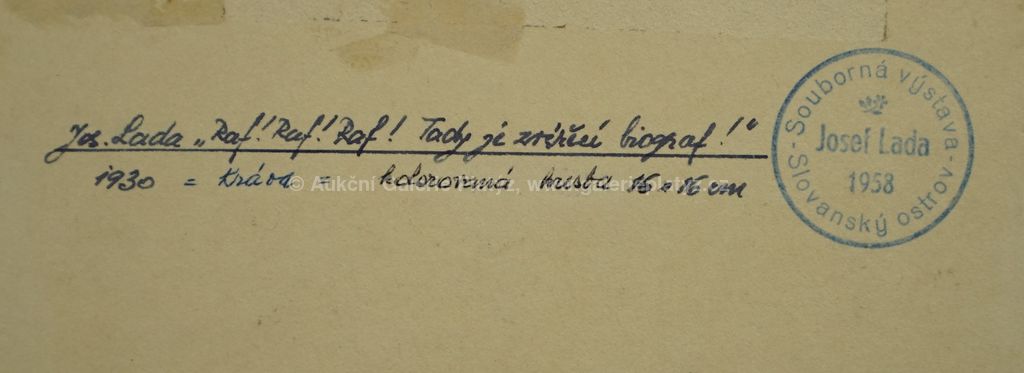 Jos. Lada „Raf! Raf! Raf! Tady je zvířecí biograf!"
1930 = Kráva = kolorovaná kresba 16 × 16 cm
© Aukční
- Souborná výstava -
Josef Lada
1958
Slovanský ostrov